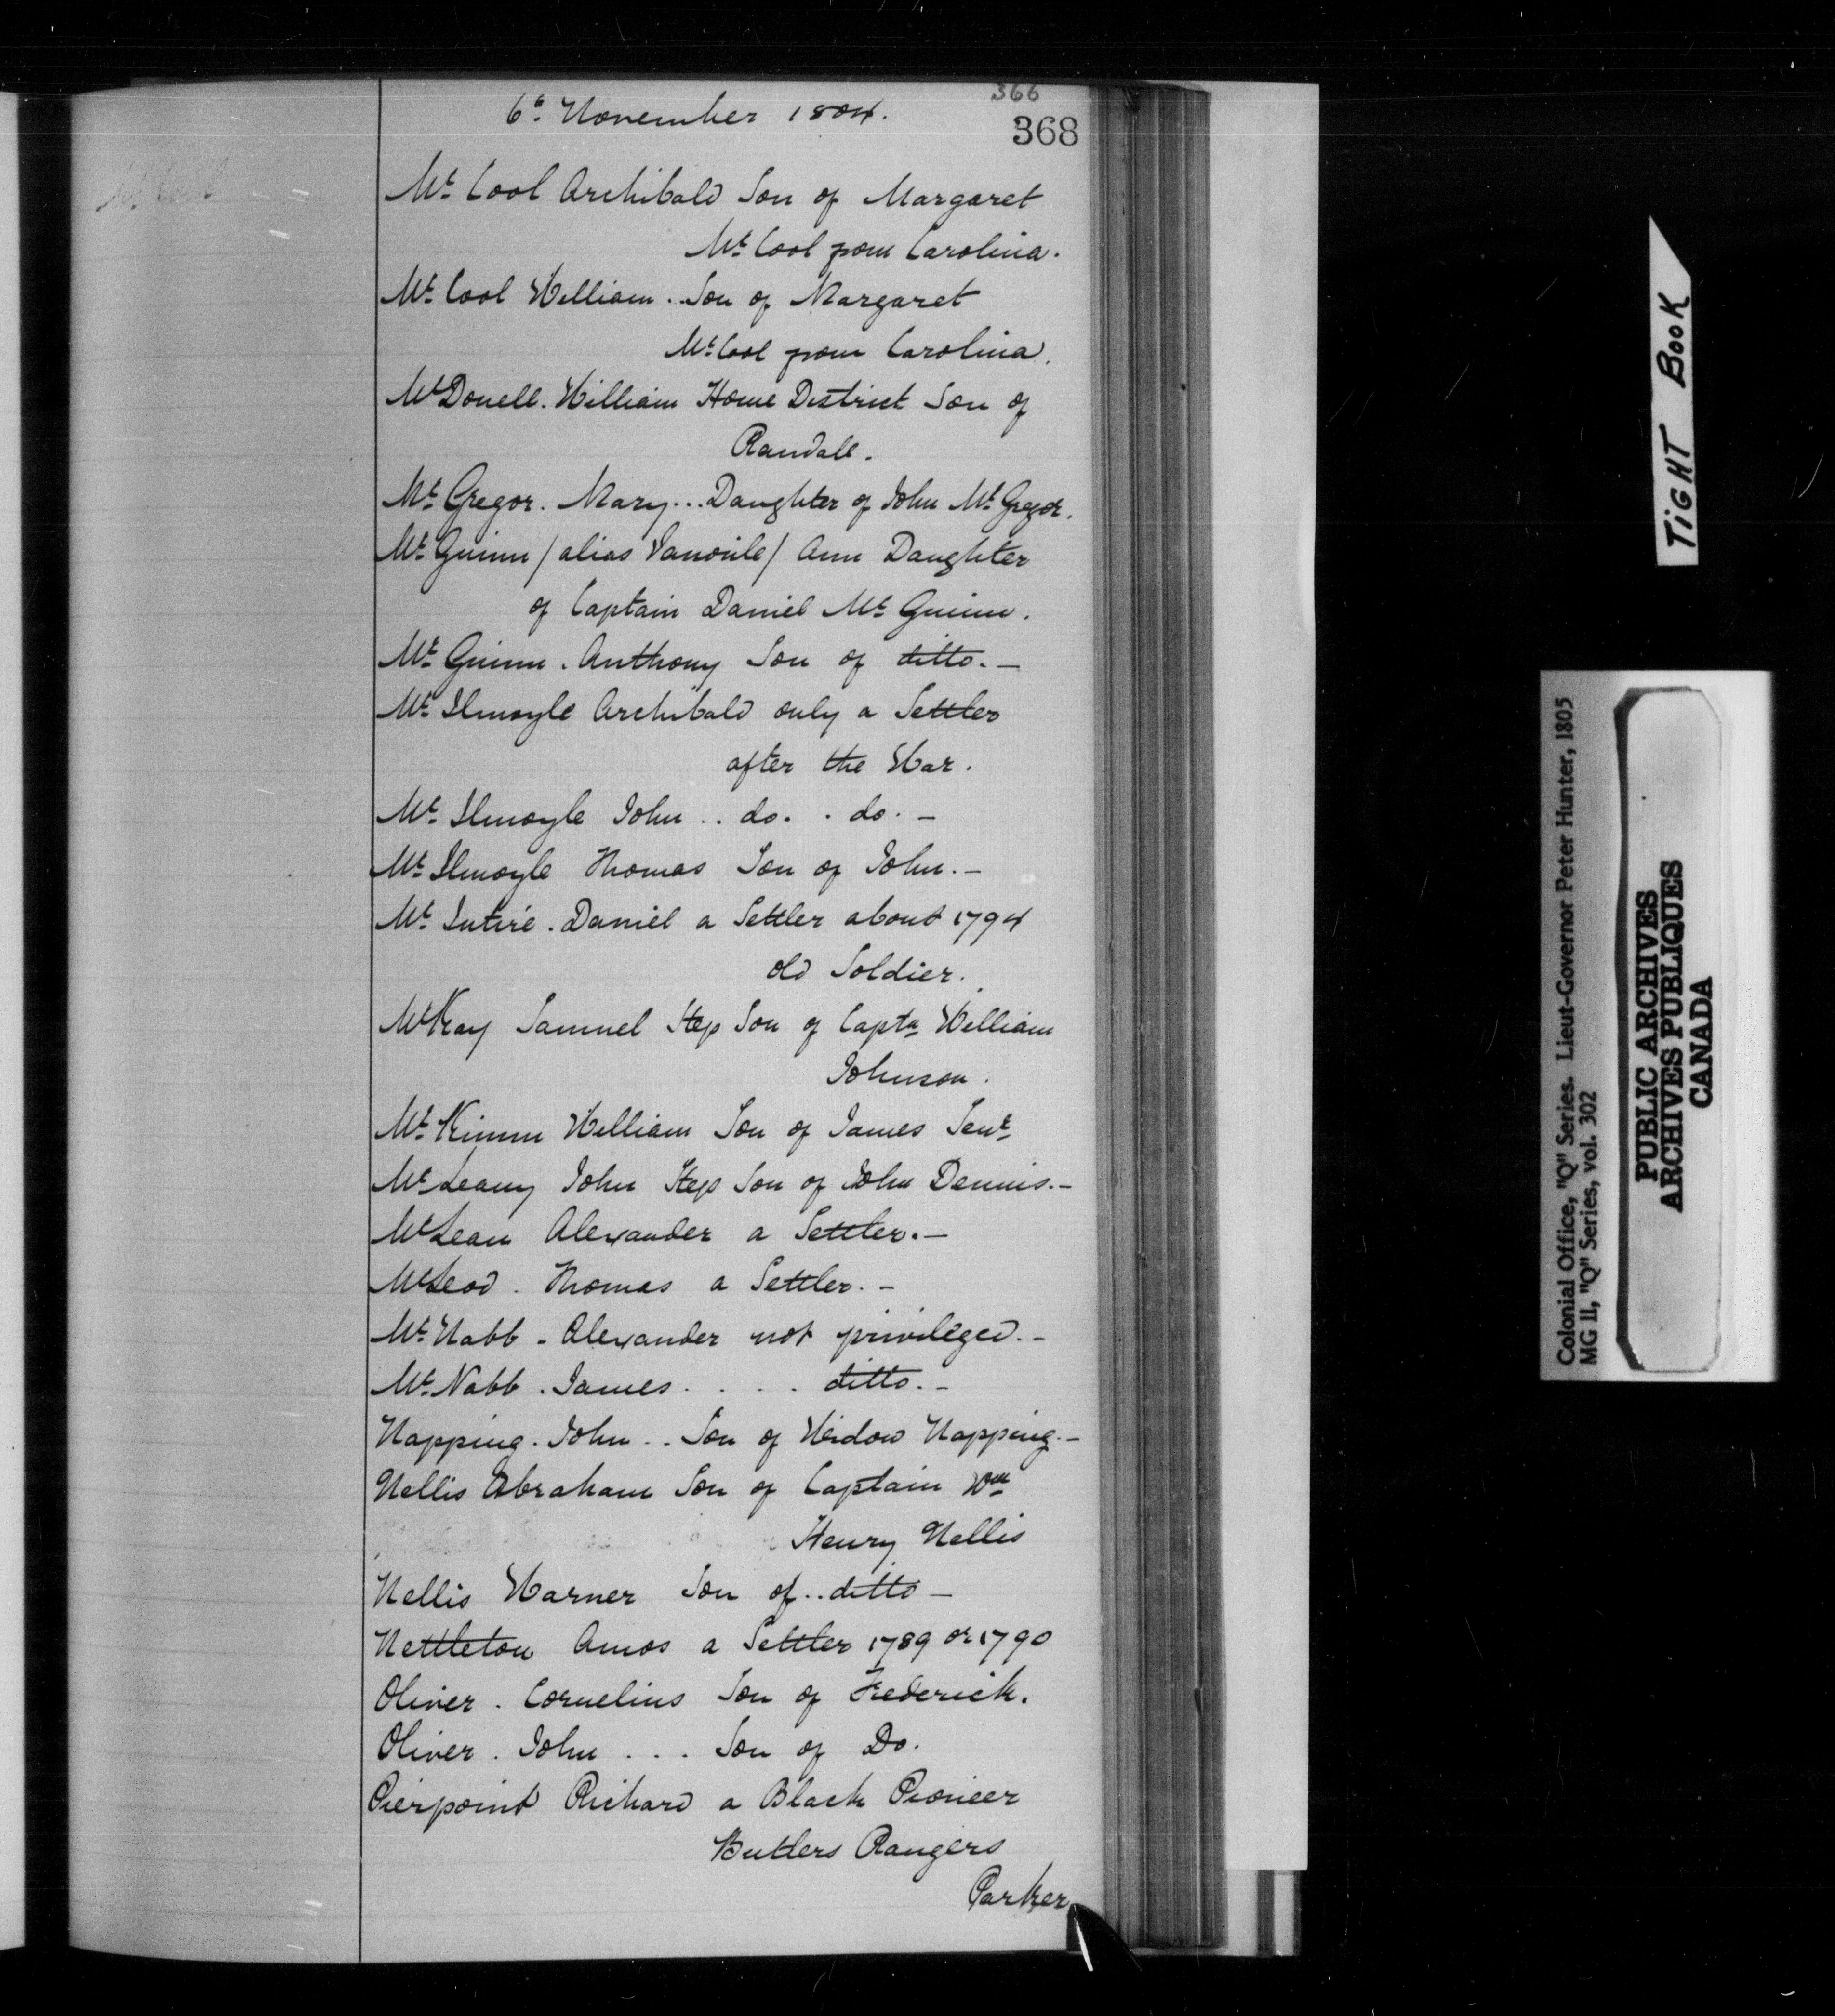 366
6th November 1804.
368
Mc Cool Archibald Son of Margaret
Mc Cool from Carolina.
Mc Cool William . Son of Margaret
Mc Cool from Carolina.
McDonell . William Home District Son of
Randall .
Mc Gregor . Mary ... Daughter of John Mc Gregor.
Mc Guinn / alias / Ann Daughter
of Captain Daniel Mc Guinn .
Mc Guinn . Anthony Son of ditto. —
Mc Ilmoyle Archibald only a Settler
after the War .
Mc Ilmoyle John .. do. . do. —
Mc Ilmoyle Thomas Son of John. —
Mc Intire . Daniel a Settler about 1794
old Soldier.
McKay Samuel Step Son of Captn William
Johnson .
Mc Kimm William Son of James Senr
McLeany John Step Son of John Dennis. —
McLean Alexander a Settler. —
McLeod . Thomas a Settler. —
Mc Nabb - Alexander not privileged. —
Mc Nabb . James . . . . ditto. —
Napping . John .. Son of Widow Napping. —
Nellis Abraham Son of Captain Wm
Henry Nellis
Nellis Warner Son of .. ditto —
Nettleton Amos a Settler 1789 or 1790
Oliver . Cornelius Son of Frederick.
Oliver . John . . . Son of Do.
Pierpoint Richard a Black Pioneer
Butlers Rangers
Parker
TIGHT BOOK
Colonial Office, "Q" Series. Lieut-Governor Peter Hunter, 1805
MG 11, "Q" Series, vol. 302
PUBLIC ARCHIVES
ARCHIVES PUBLIQUES
CANADA